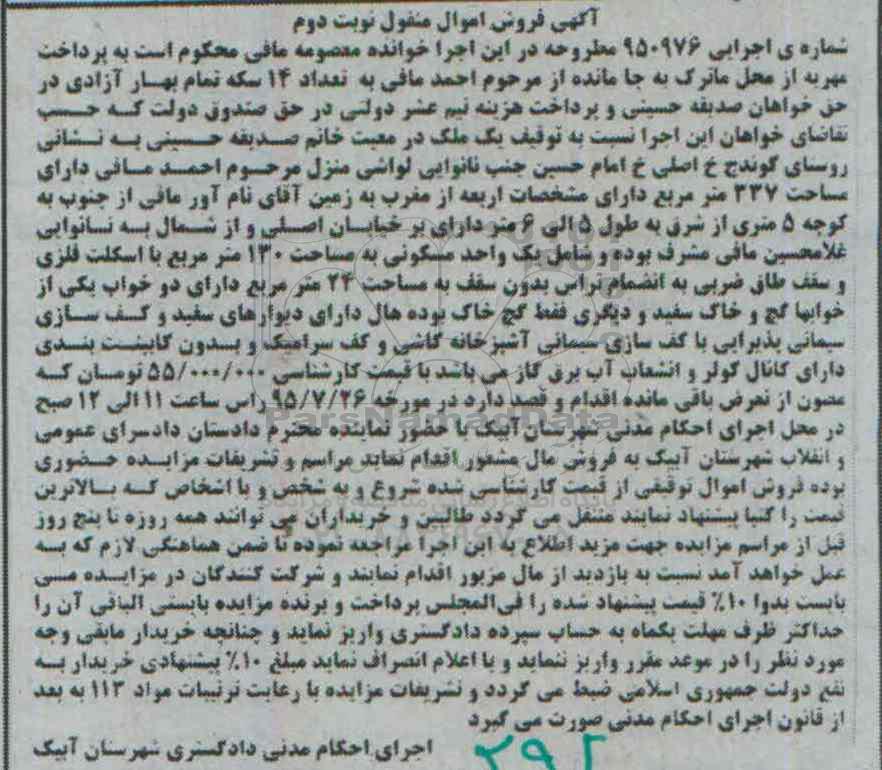 آگهی فروش اموال منقول نوبت دوم
شماره ی اجرایی ۹۵۰۹۷۶ مطروحه در این اجرا خوانده معصومه مافی محکوم است به پرداخت
مهریه از محل ماترک به جا مانده از مرحوم احمد مافی به تعداد ۱۴ سکه تمام بهار آزادی در
حق خواهان صدیقه حسینی و پرداخت هزینه نیم عشر دولتی در حق صندوق دولت که حسب
تقاضای خواهان این اجرا نسبت به توقیف یک ملک در معیت خانم صدیقه حسینی به نشانی
روستای گوندج خ اصلی خ امام حسین جنب نانوایی لواشی منزل مرحوم احمد مافی دارای
مساحت ۳۳۷ متر مربع دارای مشخصات اربعه از مغرب به زمین آقای نام آور مافی از جنوب به
کوچه ۵ متری از شرق به طول ۵ الی ۶ متر دارای بر خیابان اصلی و از شمال به نانوایی
غلامحسین مافی مشرف بوده و شامل یک واحد مسکونی به مساحت ۱۳۰ متر مربع با اسکلت فلزی
و سقف طاق ضربی به انضمام تراس بدون سقف به مساحت ۲۴ متر مربع دارای دو خواب یکی از
خوابها گچ و خاک سفید و دیگری فقط گچ خاک بوده هال دارای دیوارهای سفید و کف سازی
سیمانی پذیرایی با کف سازی سیمانی آشپزخانه کاشی و کف سرامیک و بدون کابینت بندی
دارای کانال کولر و انشعاب آب برق گاز می باشد با قیمت کارشناسی ۵۵/۰۰۰/۰۰۰ تومان که
مصون از تعرض باقی مانده اقدام و قصد دارد در مورخه ۹۵/۷/۲۶ راس ساعت ۱۱ الی ۱۲ صبح
در محل اجرای احکام مدنی شهرستان آبیک با حضور نماینده محترم دادستان دادسرای عمومی
و انقلاب شهرستان آبیک به فروش مال مشعور اقدام نماید مراسم و تشریفات مزایده حضوری
بوده فروش اموال توقیفی از قیمت کارشناسی شده شروع و به شخص و یا اشخاص که بالاترین
قیمت را کتبا پیشنهاد نمایند منتقل می گردد طالبین و خریداران می توانند همه روزه تا پنج روز
قبل از مراسم مزایده جهت مزید اطلاع به این اجرا مراجعه نموده تا ضمن هماهنگی لازم که به
عمل خواهد آمد نسبت به بازدید از مال مزبور اقدام نمایند و شرکت کنندگان در مزایده می
بایست بدوا ۱۰٪ قیمت پیشنهاد شده را فی‌المجلس پرداخت و برنده مزایده بایستی الباقی آن را
حداکثر ظرف مهلت یکماه به حساب سپرده دادگستری واریز نماید و چنانچه خریدار مابقی وجه
مورد نظر را در موعد مقرر واریز ننماید و یا اعلام انصراف نماید مبلغ ۱۰٪ پیشنهادی خریدار به
نفع دولت جمهوری اسلامی ضبط می گردد و تشریفات مزایده با رعایت ترتیبات مواد ۱۱۳ به بعد
از قانون اجرای احکام مدنی صورت می گیرد
اجرای احکام مدنی دادگستری شهرستان آبیک
ParsNamadData